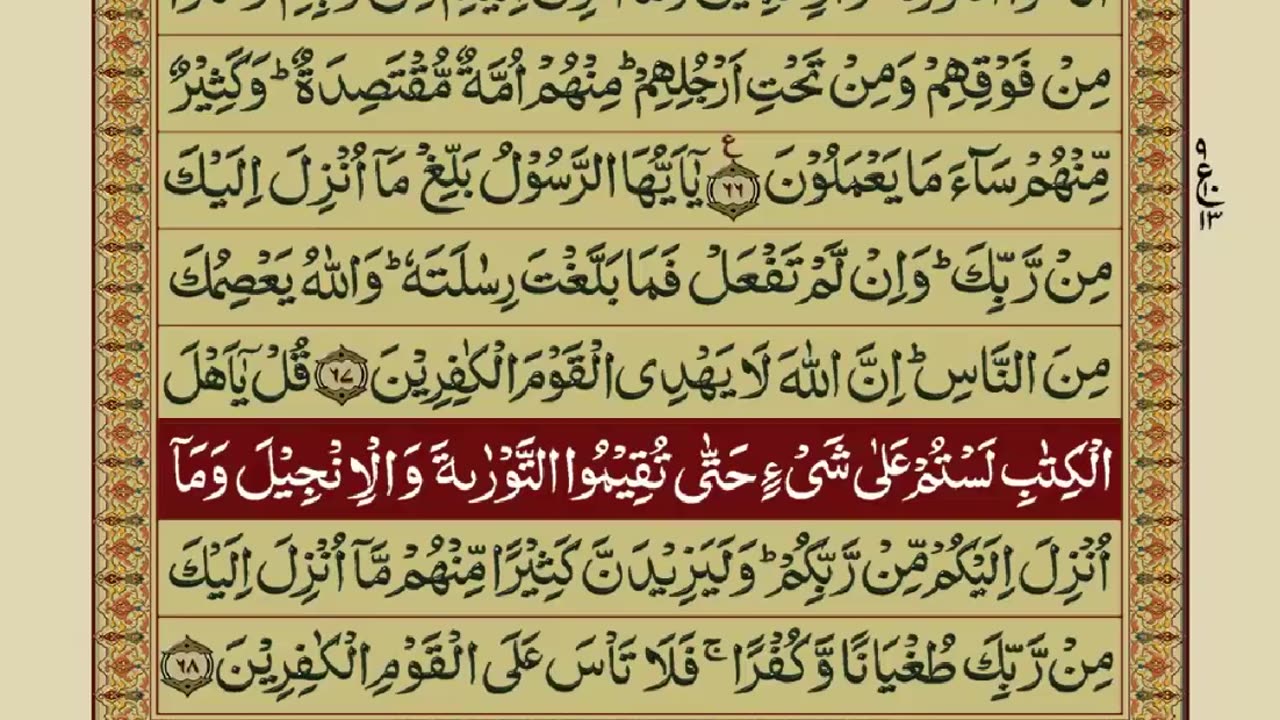 مِنْ فَوْقِهِمْ وَمِنْ تَحْتِ اَرْجُلِهِمْ ؕ مِنْهُمْ اُمَّةٌ مُّقْتَصِدَةٌ ؕ وَكَثِيْرٌ
مِّنْهُمْ سَآءَ مَا يَعْمَلُوْنَ ﴿۶۶﴾ ع يٰۤاَيُّهَا الرَّسُوْلُ بَلِّغْ مَاۤ اُنْزِلَ اِلَيْكَ
مِنْ رَّبِّكَ ؕ وَاِنْ لَّمْ تَفْعَلْ فَمَا بَلَّغْتَ رِسٰلَتَهٗ ؕ وَاللّٰهُ يَعْصِمُكَ
مِنَ النَّاسِ ؕ اِنَّ اللّٰهَ لَا يَهْدِى الْقَوْمَ الْكٰفِرِيْنَ ﴿۶۷﴾ قُلْ يٰۤاَهْلَ
الْكِتٰبِ لَسْتُمْ عَلٰى شَىْءٍ حَتّٰى تُقِيْمُوا التَّوْرٰىةَ وَالْاِنْجِيْلَ وَمَاۤ
اُنْزِلَ اِلَيْكُمْ مِّنْ رَّبِّكُمْ ؕ وَلَيَزِيْدَنَّ كَثِيْرًا مِّنْهُمْ مَّاۤ اُنْزِلَ اِلَيْكَ
مِنْ رَّبِّكَ طُغْيَانًا وَّكُفْرًا ۚ فَلَا تَاْسَ عَلَى الْقَوْمِ الْكٰفِرِيْنَ ﴿۶۸﴾